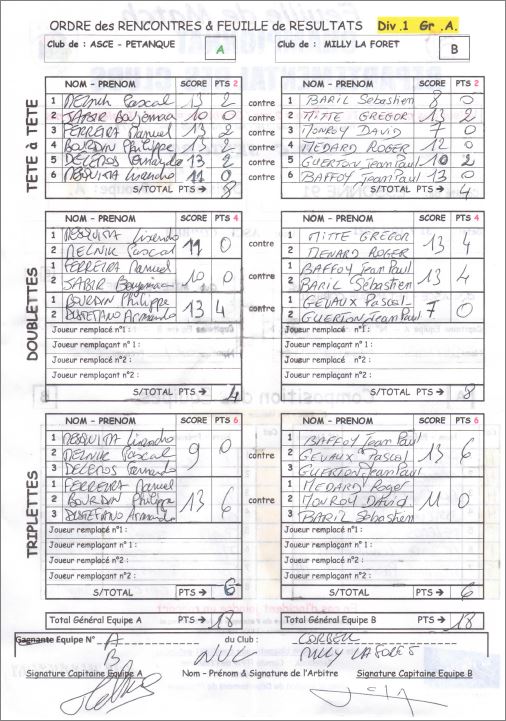 ORDRE des RENCONTRES & FEUILLE de RESULTATS Div.1 Gr.A.
Club de : ASCE - PETANQUE A Club de : MILLY LA FORET B
TETE à TETE
NOM - PRENOM SCORE PTS 2 NOM - PRENOM SCORE PTS 2
1 MELNIK Pascal 13 2 contre 1 BARIL Sébastien 8 0
2 JABIR Boujemaa 10 0 contre 2 MITTE GREGOR 13 2
3 FERREIRA Manuel 13 2 contre 3 MONROY DAVID 7 0
4 BOURDIN Philippe 13 2 contre 4 MEDARD ROGER 12 0
5 DECEMOS Fernando 13 2 contre 5 GUERTON Jean Paul 10 2
6 MESQUITA Lisandro 11 0 contre 6 BAFFOY Jean Paul 13 0
S/TOTAL PTS → 8 S/TOTAL PTS → 4
DOUBLETTES
NOM - PRENOM SCORE PTS 4 NOM - PRENOM SCORE PTS 4
1 MESQUITA Lisandro 11 0 contre 1 MITTE GREGOR 13 4
2 MELNIK Pascal 2 MENARD ROGER
1 FERREIRA Manuel 10 0 contre 1 BAFFOY Jean Paul 13 4
2 JABIR Boujemaa 2 BARIL Sébastien
1 BOURDIN Philippe 13 4 contre 1 GEVAUX Pascal 7 0
2 DISTEFANO Armando 2 GUERTON Jean Paul
Joueur remplacé n°1 : Joueur remplacé n°1 :
Joueur remplaçant n°1 : Joueur remplaçant n°1 :
Joueur remplacé n°2 : Joueur remplacé n°2 :
Joueur remplaçant n°2 : Joueur remplaçant n°2 :
S/TOTAL PTS → 4 S/TOTAL PTS → 8
TRIPLETTES
NOM - PRENOM SCORE PTS 6 NOM - PRENOM SCORE PTS 6
1 MESQUITA Lisandro 9 0 1 BAFFOY Jean Paul 13 6
2 MELNIK Pascal contre 2 GEVAUX Pascal
3 DECEMOS Fernando 3 GUERTON Jean Paul
1 FERREIRA Manuel 13 6 1 MEDARD Roger 11 0
2 BOURDIN Philippe contre 2 MONROY David
3 DISTEFANO Armando 3 BARIL Sébastien
Joueur remplacé n°1 : Joueur remplacé n°1 :
Joueur remplaçant n°1 : Joueur remplaçant n°1 :
Joueur remplacé n°2 : Joueur remplacé n°2 :
Joueur remplaçant n°2 : Joueur remplaçant n°2 :
S/TOTAL PTS → 6 S/TOTAL PTS → 6
Total Général Equipe A PTS → 18 Total Général Equipe B PTS → 18
Gagnante Equipe N° A du Club : CORBEIL
B NUL MILLY LA FORET
Signature Capitaine Equipe A Nom - Prénom & Signature de l'Arbitre Signature Capitaine Equipe B